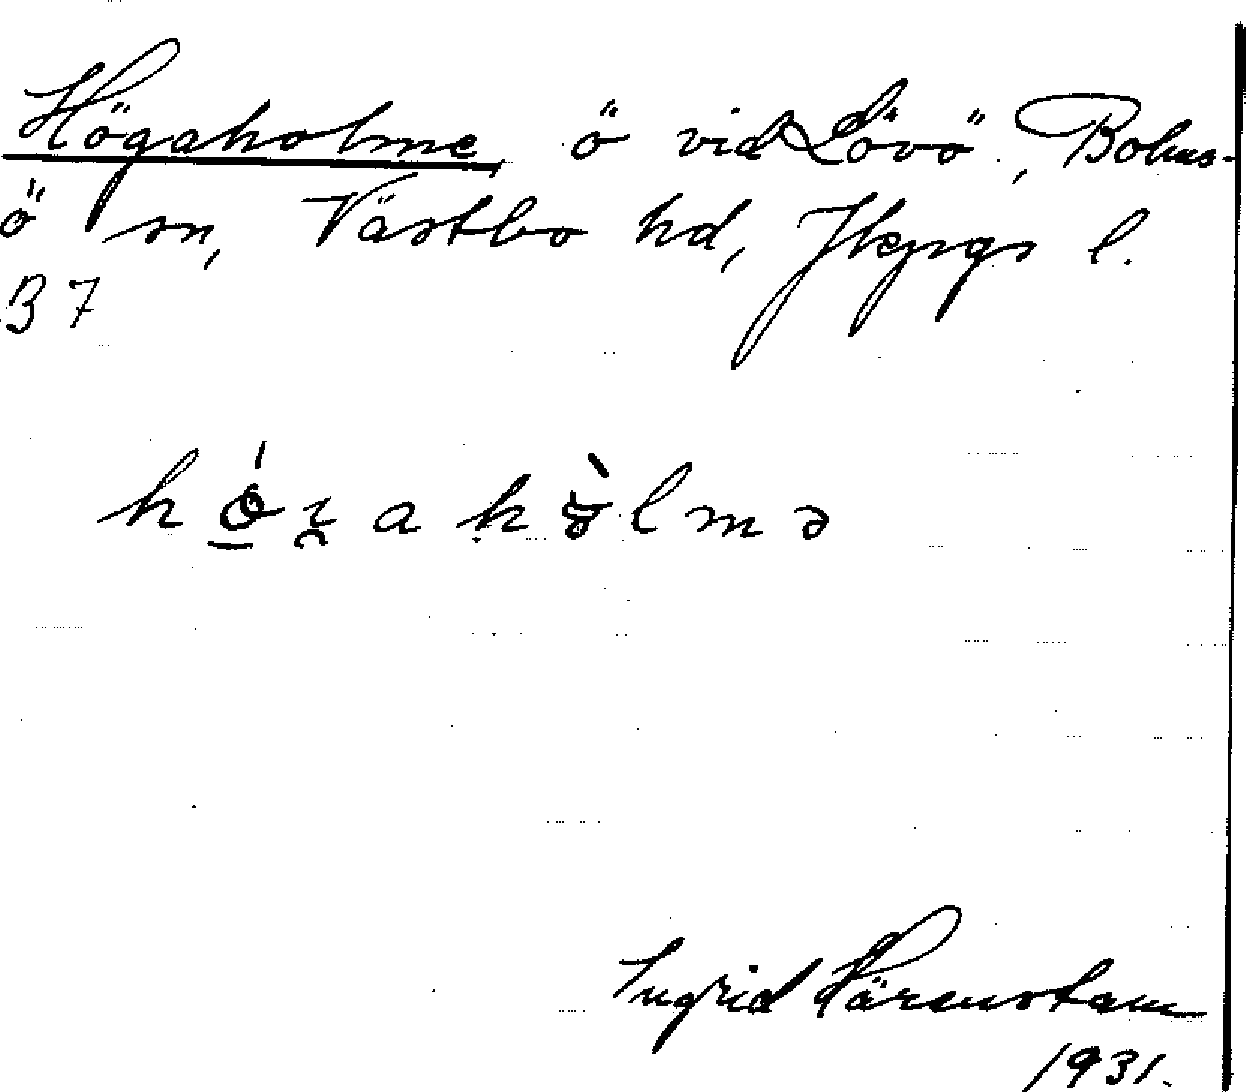 Högaholme ö vid Lövö, Bolms-
ö sn, Västbo hd, Jkpgs l.
B 7
Ingrid Härenstam
1931.